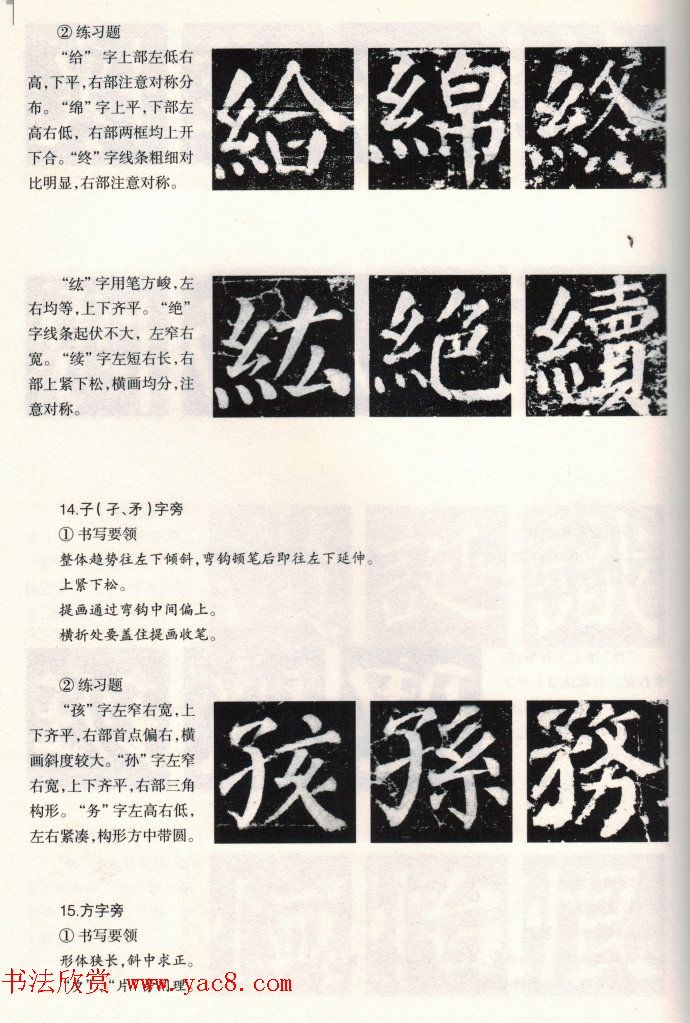 ② 练习题
“给” 字上部左低右
高,下平,右部注意对称分
布。“绵”字上平,下部左
高右低, 右部两框均上开
下合。“终”字线条粗细对
比明显,右部注意对称。
給 綿 終
“纮”字用笔方峻,左
右均等,上下齐平。“绝”
字线条起伏不大, 左窄右
宽。“续”字左短右长,右
部上紧下松,横画均分,注
意对称。
紘 絕 續
14.子( 孑、矛)字旁
① 书写要领
整体趋势往左下倾斜,弯钩顿笔后即往左下延伸。
上紧下松。
提画通过弯钩中间偏上。
横折处要盖住提画收笔。
② 练习题
“孩”字左窄右宽,上
下齐平,右部首点偏右,横
画斜度较大。“孙”字左窄
右宽,上下齐平,右部三角
构形。“务”字左高右低,
左右紧凑,构形方中带圆。
孩 孫 務
15.方字旁
① 书写要领
形体狭长,斜中求正。
“片”旁同理。
书法欣赏 www.yac8.com